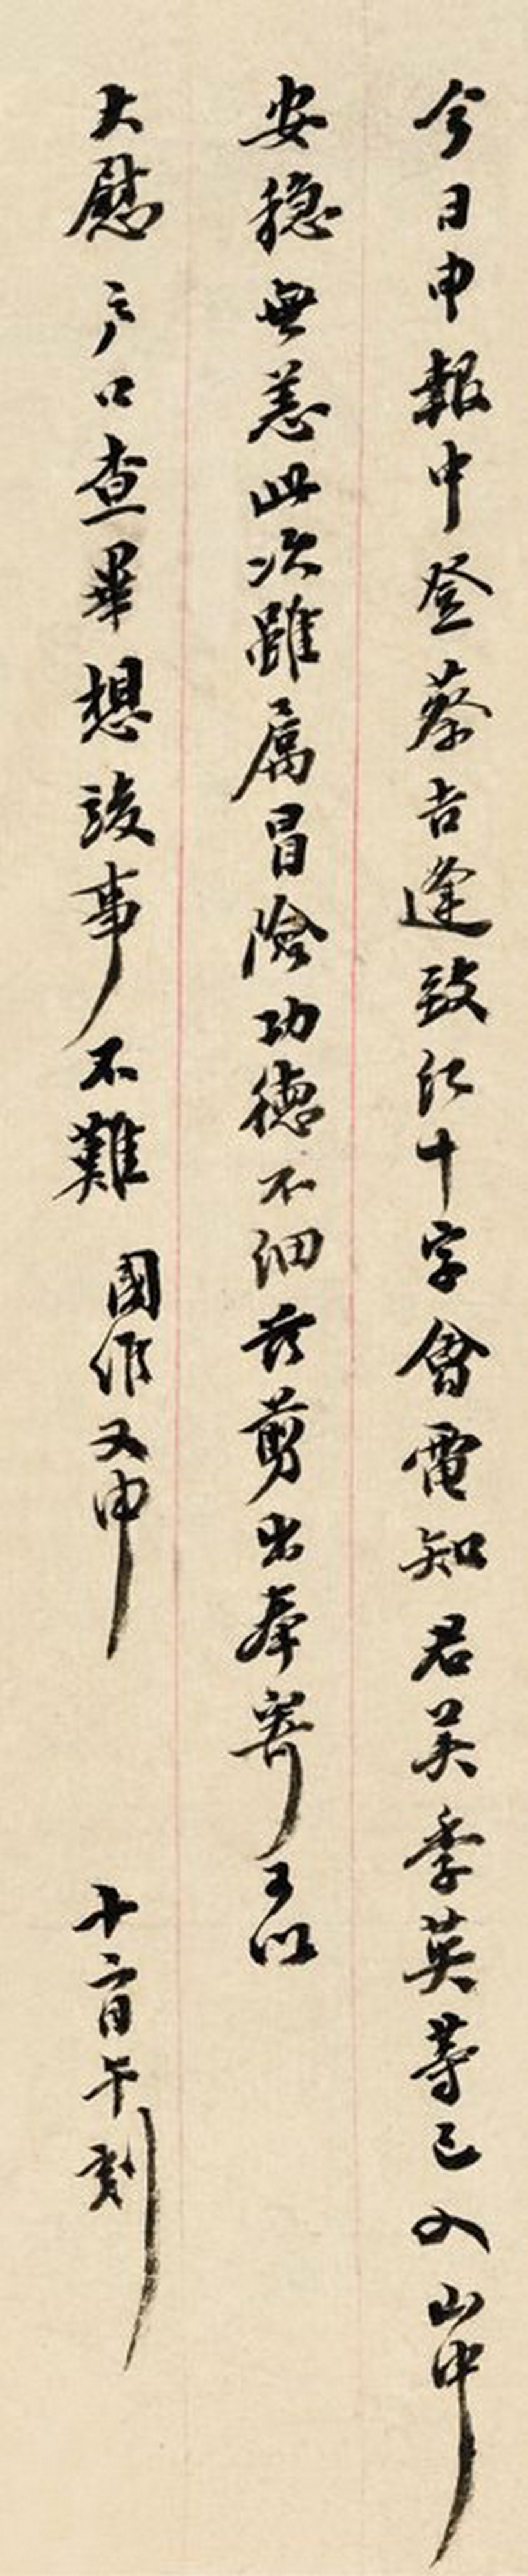 今日申報中登蔡吉逢致紅十字會電知君吳季英等已入山中
安穩無恙此次雖屬冒險功德不細茲剪出奉寄可以
大慰戶口查畢想設事不難 國作又申 十二日午刻